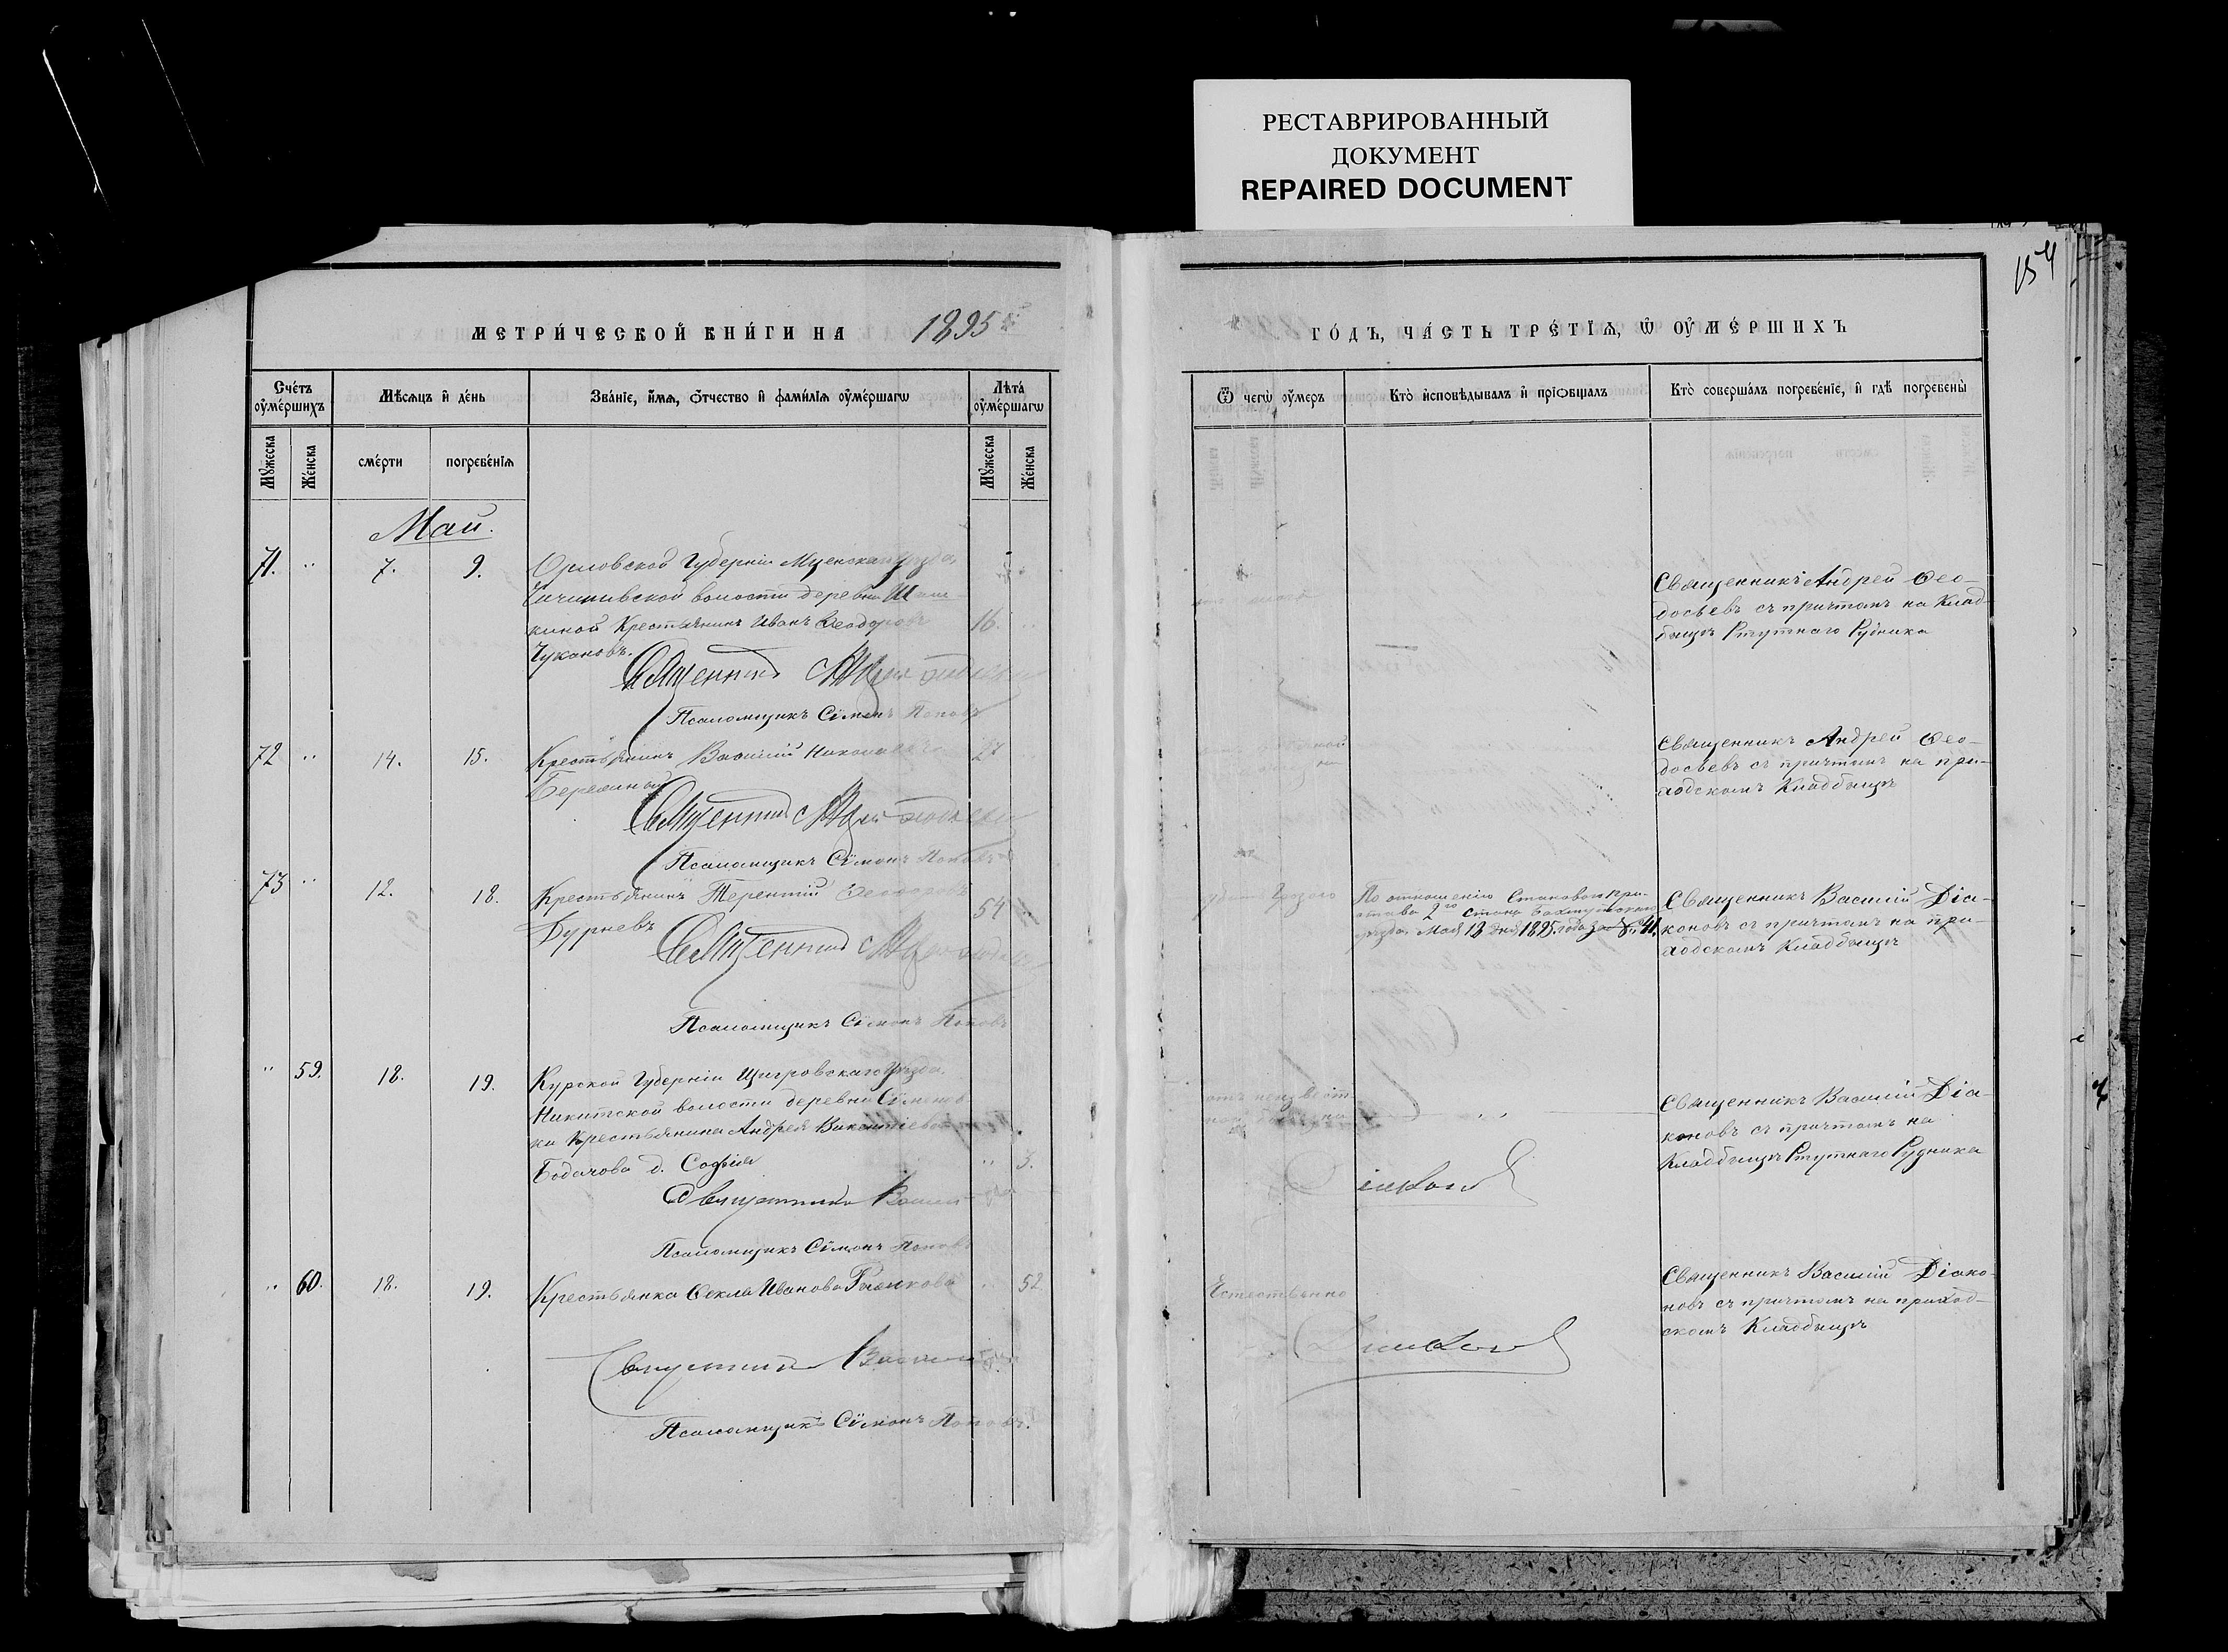 РЕСТАВРИРОВАННЫЙ
ДОКУМЕНТ
REPAIRED DOCUMENT
154
МЕТРИ́ЧЕСКОЙ КНИ́ГИ НА 1895
ГО́ДЪ, ЧА́СТЬ ТРЕ́ТІѦ, Ѡ҆ ОУ҆МЕ́РШИХЪ
Сче́тъ оу҆ме́ршихъ
Мѣ́сѧцъ и҆ де́нь
Зва́нїе, и҆́мѧ, ѻ҆́тчество и҆ фами́лїѧ оу҆ме́ршагѡ
Лѣта̀ оу҆ме́ршагѡ
Ѿ чегѡ̀ оу҆́меръ
Кто̀ и҆сповѣ́дывалъ и҆ прїѻбща́лъ
Кто̀ соверша́лъ погребе́нїе, и҆ гдѣ̀ погребены̀
Мꙋ́жеска
Же́нска
сме́рти
погребе́нїѧ
Мꙋ́жеска
Же́нска
Май.
71. " 7. 9. Орловской Губерніи Мценскаго уѣзда,
волости деревни
киной Крестьянинъ Иванъ Ѳеодоровъ 16. "
Чукановъ.
Священникъ Андрей
Псаломщикъ Сѵмонъ Поповъ
Священникъ Андрей Ѳео-
досьевъ съ причтомъ на Клад-
бищѣ Ртутнаго Рудника
72 " 14. 15. Крестьянинъ Василій 27
Священникъ Андрей
Псаломщикъ Сѵмонъ Поповъ
Священникъ Андрей Ѳео-
досьевъ съ причтомъ на при-
ходскомъ Кладбищѣ
73 " 12. 18. Крестьянинъ Терентій Ѳеодоровъ 54
Бурневъ
Священникъ Андрей
Псаломщикъ Сѵмонъ Поповъ
По отношенію Становаго При-
става 2го стана Бахмутскаго
уѣзда, Мая 18 дня 1895 года за № 41.
Священникъ Василій Діа-
коновъ съ причтомъ на при-
ходскомъ Кладбищѣ
" 59. 18. 19. Курской Губерніи Щигровскаго Уѣзда
Никитской волости деревни
ки Крестьянина Андрея Викентіева
Бодачова д. Софія " 3.
Священникъ Василій
Псаломщикъ Сѵмонъ Поповъ
отъ неизвѣст
ной болѣзни " "
Діаконовъ
Священникъ Василій Діа-
коновъ съ причтомъ на
Кладбищѣ Ртутнаго Рудника
" 60. 18. 19. Крестьянка Ѳекла Иванова 52
Священникъ Василій
Псаломщикъ Сѵмонъ Поповъ.
Естественно
Діаконовъ
Священникъ Василій Діако-
новъ съ причтомъ на приход-
скомъ Кладбищѣ